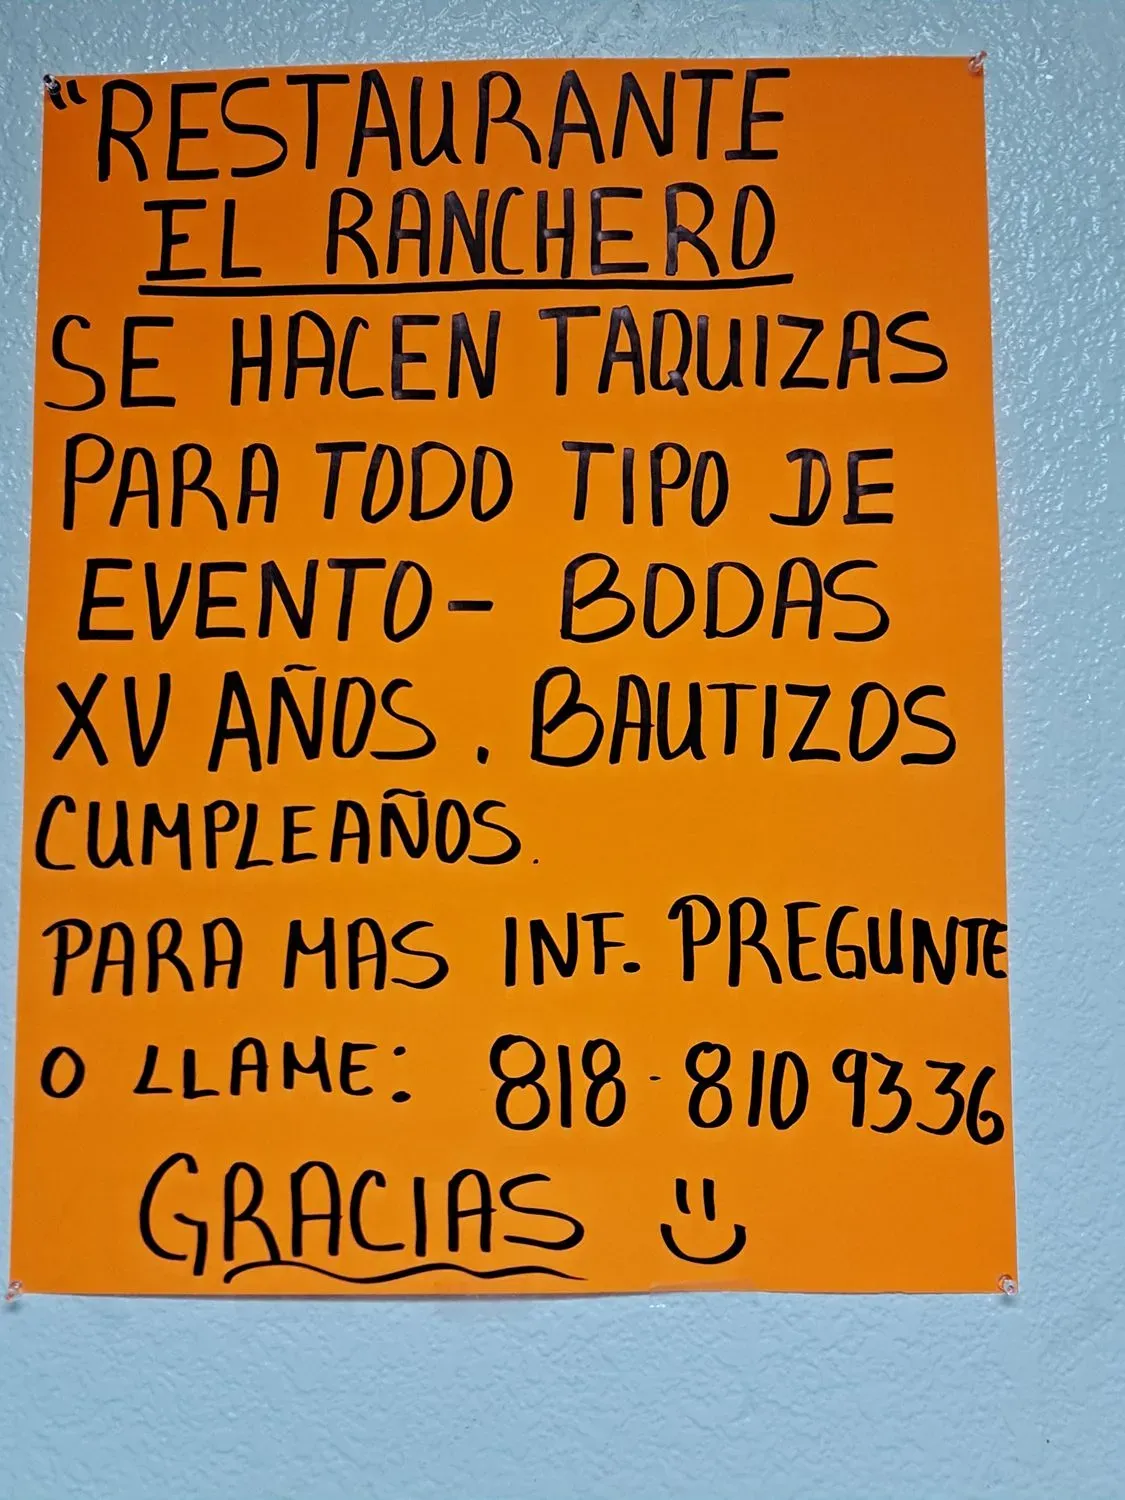 "RESTAURANTE
EL RANCHERO
SE HACEN TAQUIZAS
PARA TODO TIPO DE
EVENTO- BODAS
XV AÑOS. BAUTIZOS
CUMPLEAÑOS.
PARA MAS INF. PREGUNTE
O LLAME: 818-810 9336
GRACIAS